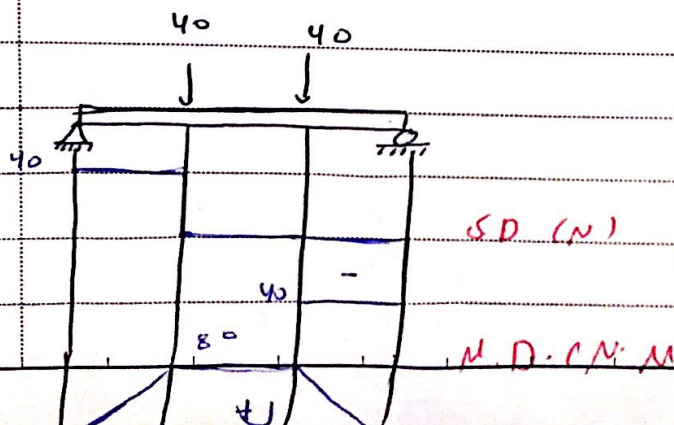 40 40
40
SD (N)
-
40
80
M.D.(N.M